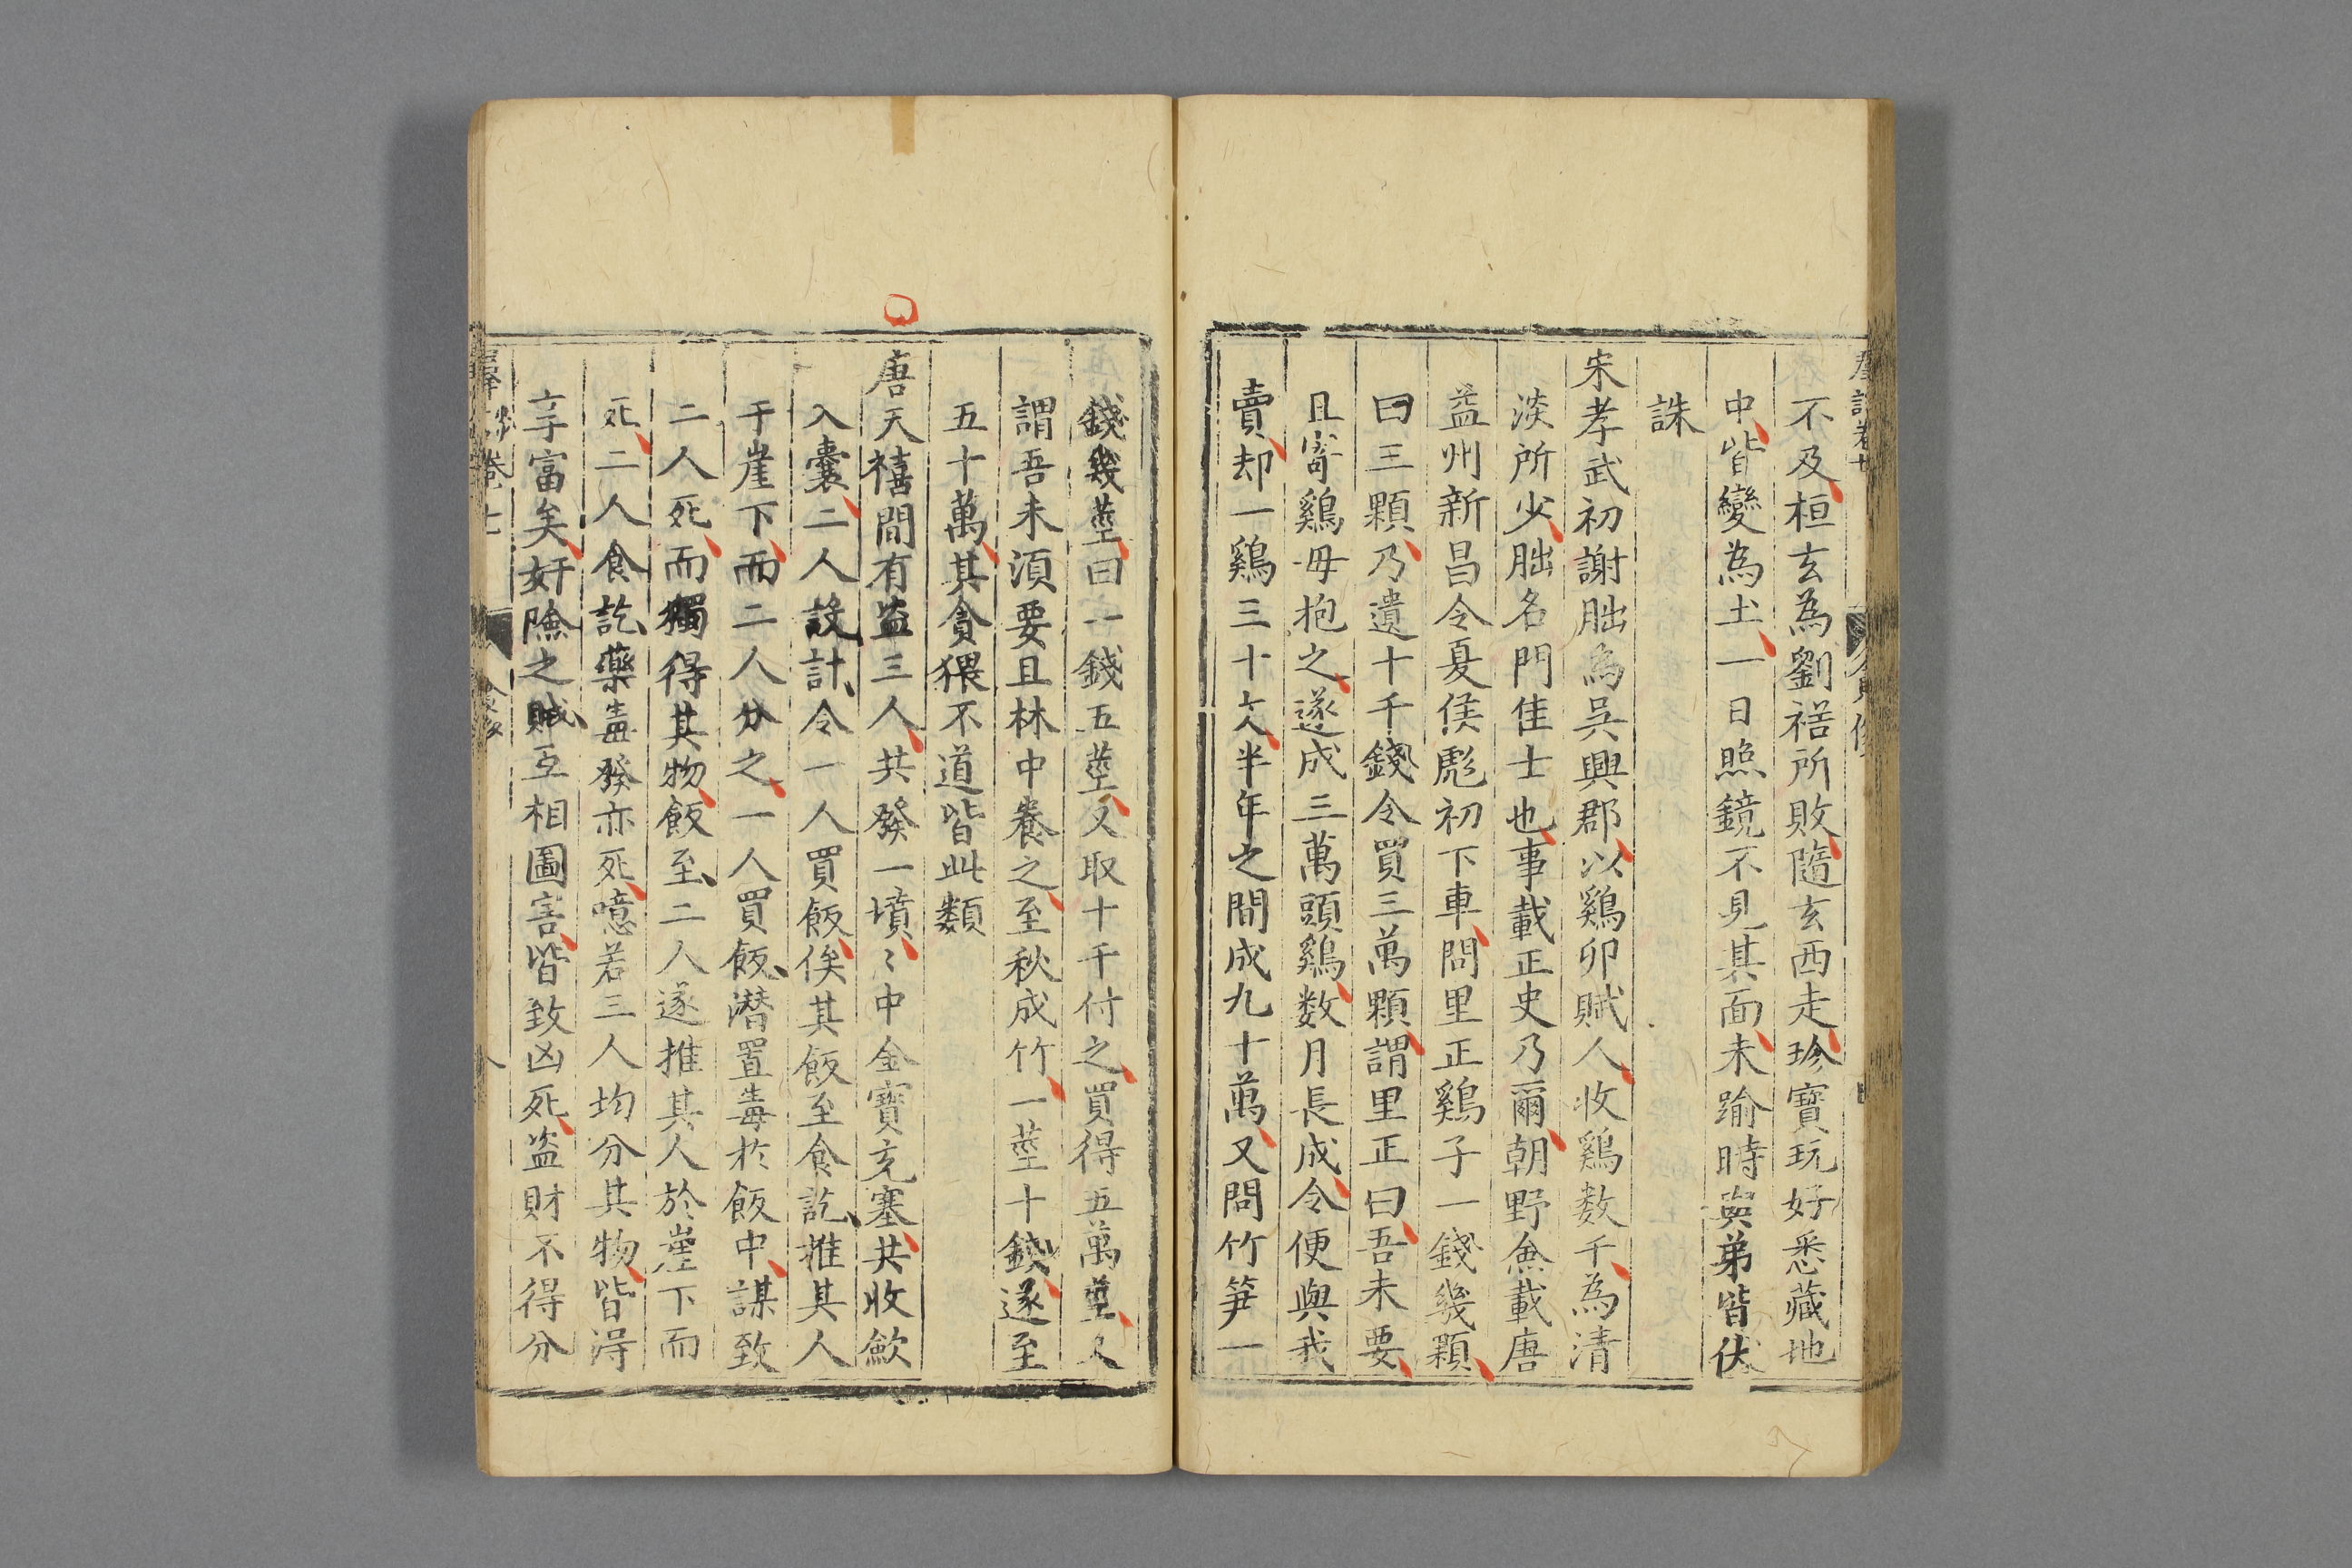 不及桓玄為劉裕所敗隨玄西走珍寶玩好悉藏地
中皆變為土一日照鏡不見其面未踰時與弟皆伏
誅
宋孝武初謝朏為吳興郡以鷄卵賦人收鷄数千為清
淡所少朏名門佳士也事載正史乃爾朝野僉載唐
益州新昌令夏侯彪初下車問里正鷄子一錢幾顆
曰三顆乃遺十千錢令買三萬顆謂里正曰吾未要
且寄鷄母抱之遂成三萬頭鷄数月長成令便與我
賣却一鷄三十文半年之間成九十萬又問竹笋一
錢幾莖曰一錢五莖又取十千付之買得五萬莖又
謂吾未須要且林中養之至秋成竹一莖十錢遂至
五十萬其貪猥不道皆此類
唐天禧間有盗三人共發一墳〻中金寶充塞共收歛
入囊二人設計令一人買飯俟其飯至食訖推其人
于崖下而二人分之一人買飯潜置毒於飯中謀致
二人死而獨得其物飯至二人遂推其人於崖下而
死二人食訖藥毒發亦死噫若三人均分其物皆得
享富矣奸險之賊互相圖害皆致凶死盗財不得分